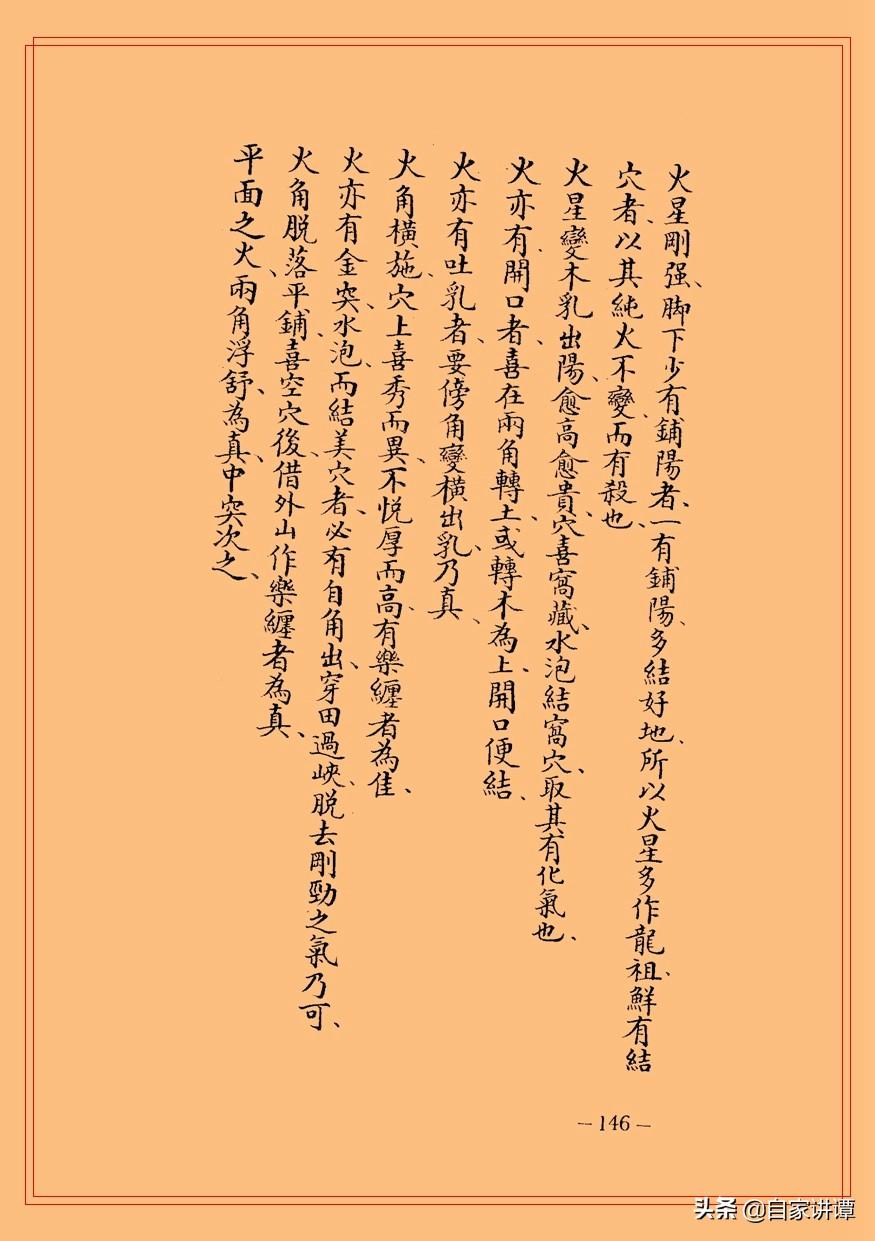 火星剛强、脚下少有鋪陽者、一有鋪陽、多結好地、所以火星多作龍祖、鮮有結
穴者、以其純火不變、而有殺也、
火星變木乳出陽、愈高愈貴、穴喜窩藏、水泡結窩穴、取其有化氣也、
火亦有開口者、喜在兩角轉土、或轉木為上、開口便結、
火亦有吐乳者、要傍角變橫出乳、乃真、
火角橫施、穴上喜秀而異、不悅厚而高、有樂纏者為佳、
火亦有金突、水泡、而結美穴者、必有自角出、穿田過峽、脱去剛勁之氣乃可、
火角脱落平鋪、喜空穴後、借外山作樂纏者為真、
平面之火、兩角浮舒、為真、中突次之、
－146－
头条 @自家讲谭